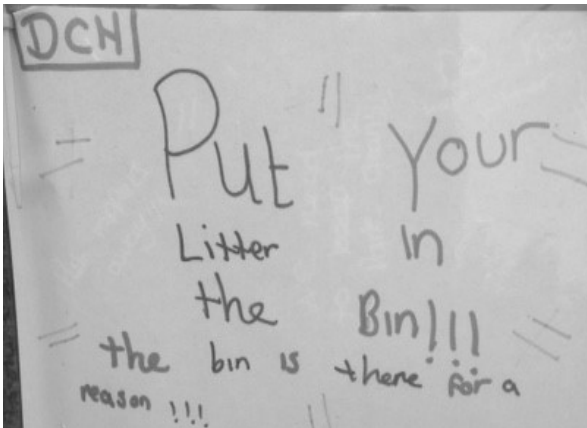 DCH
Put Your
Litter in
the Bin!!!
the bin is there for a
reason !!!